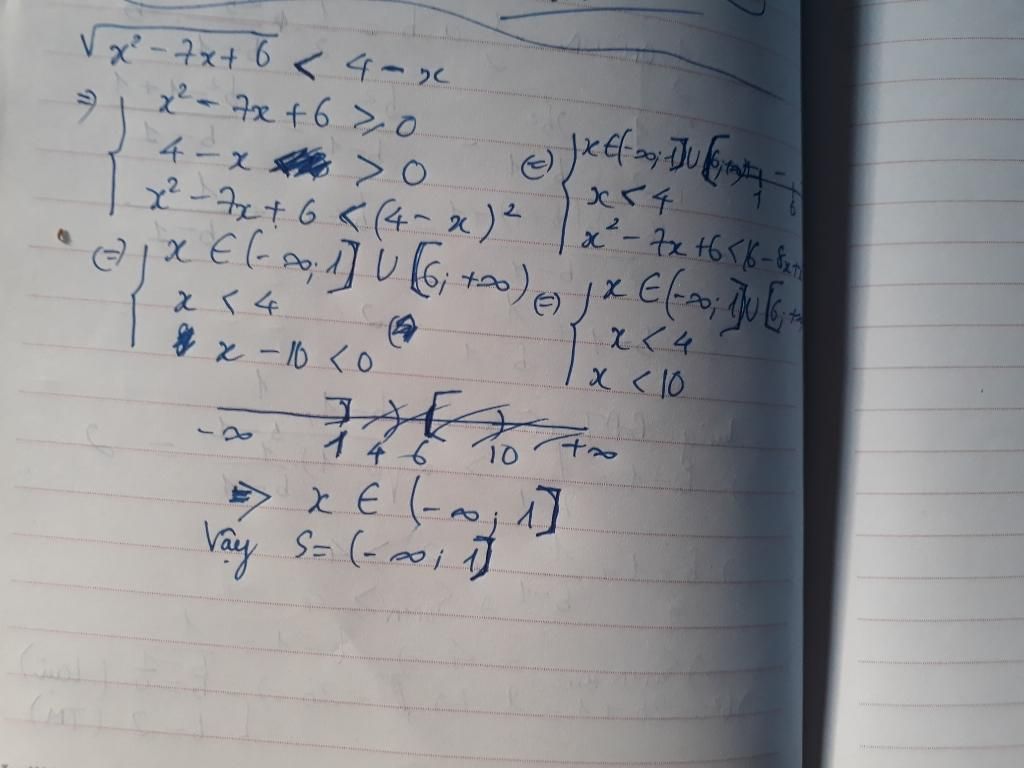 √(x² - 7x + 6) < 4 - x
⇒ { x² - 7x + 6 ≥ 0
4 - x > 0
x² - 7x + 6 < (4 - x)²
(=) { x ∈ (-∞; 1] ∪ [6; +∞)
x < 4
x² - 7x + 6 < 16 - 8x +
(=) { x ∈ (-∞; 1] ∪ [6; +∞)
x < 4
x - 10 < 0
(=) { x ∈ (-∞; 1] ∪ [6; +∞
x < 4
x < 10
-∞ 1 4 6 10 +∞
=> x ∈ (-∞; 1]
Vậy S = (-∞; 1]